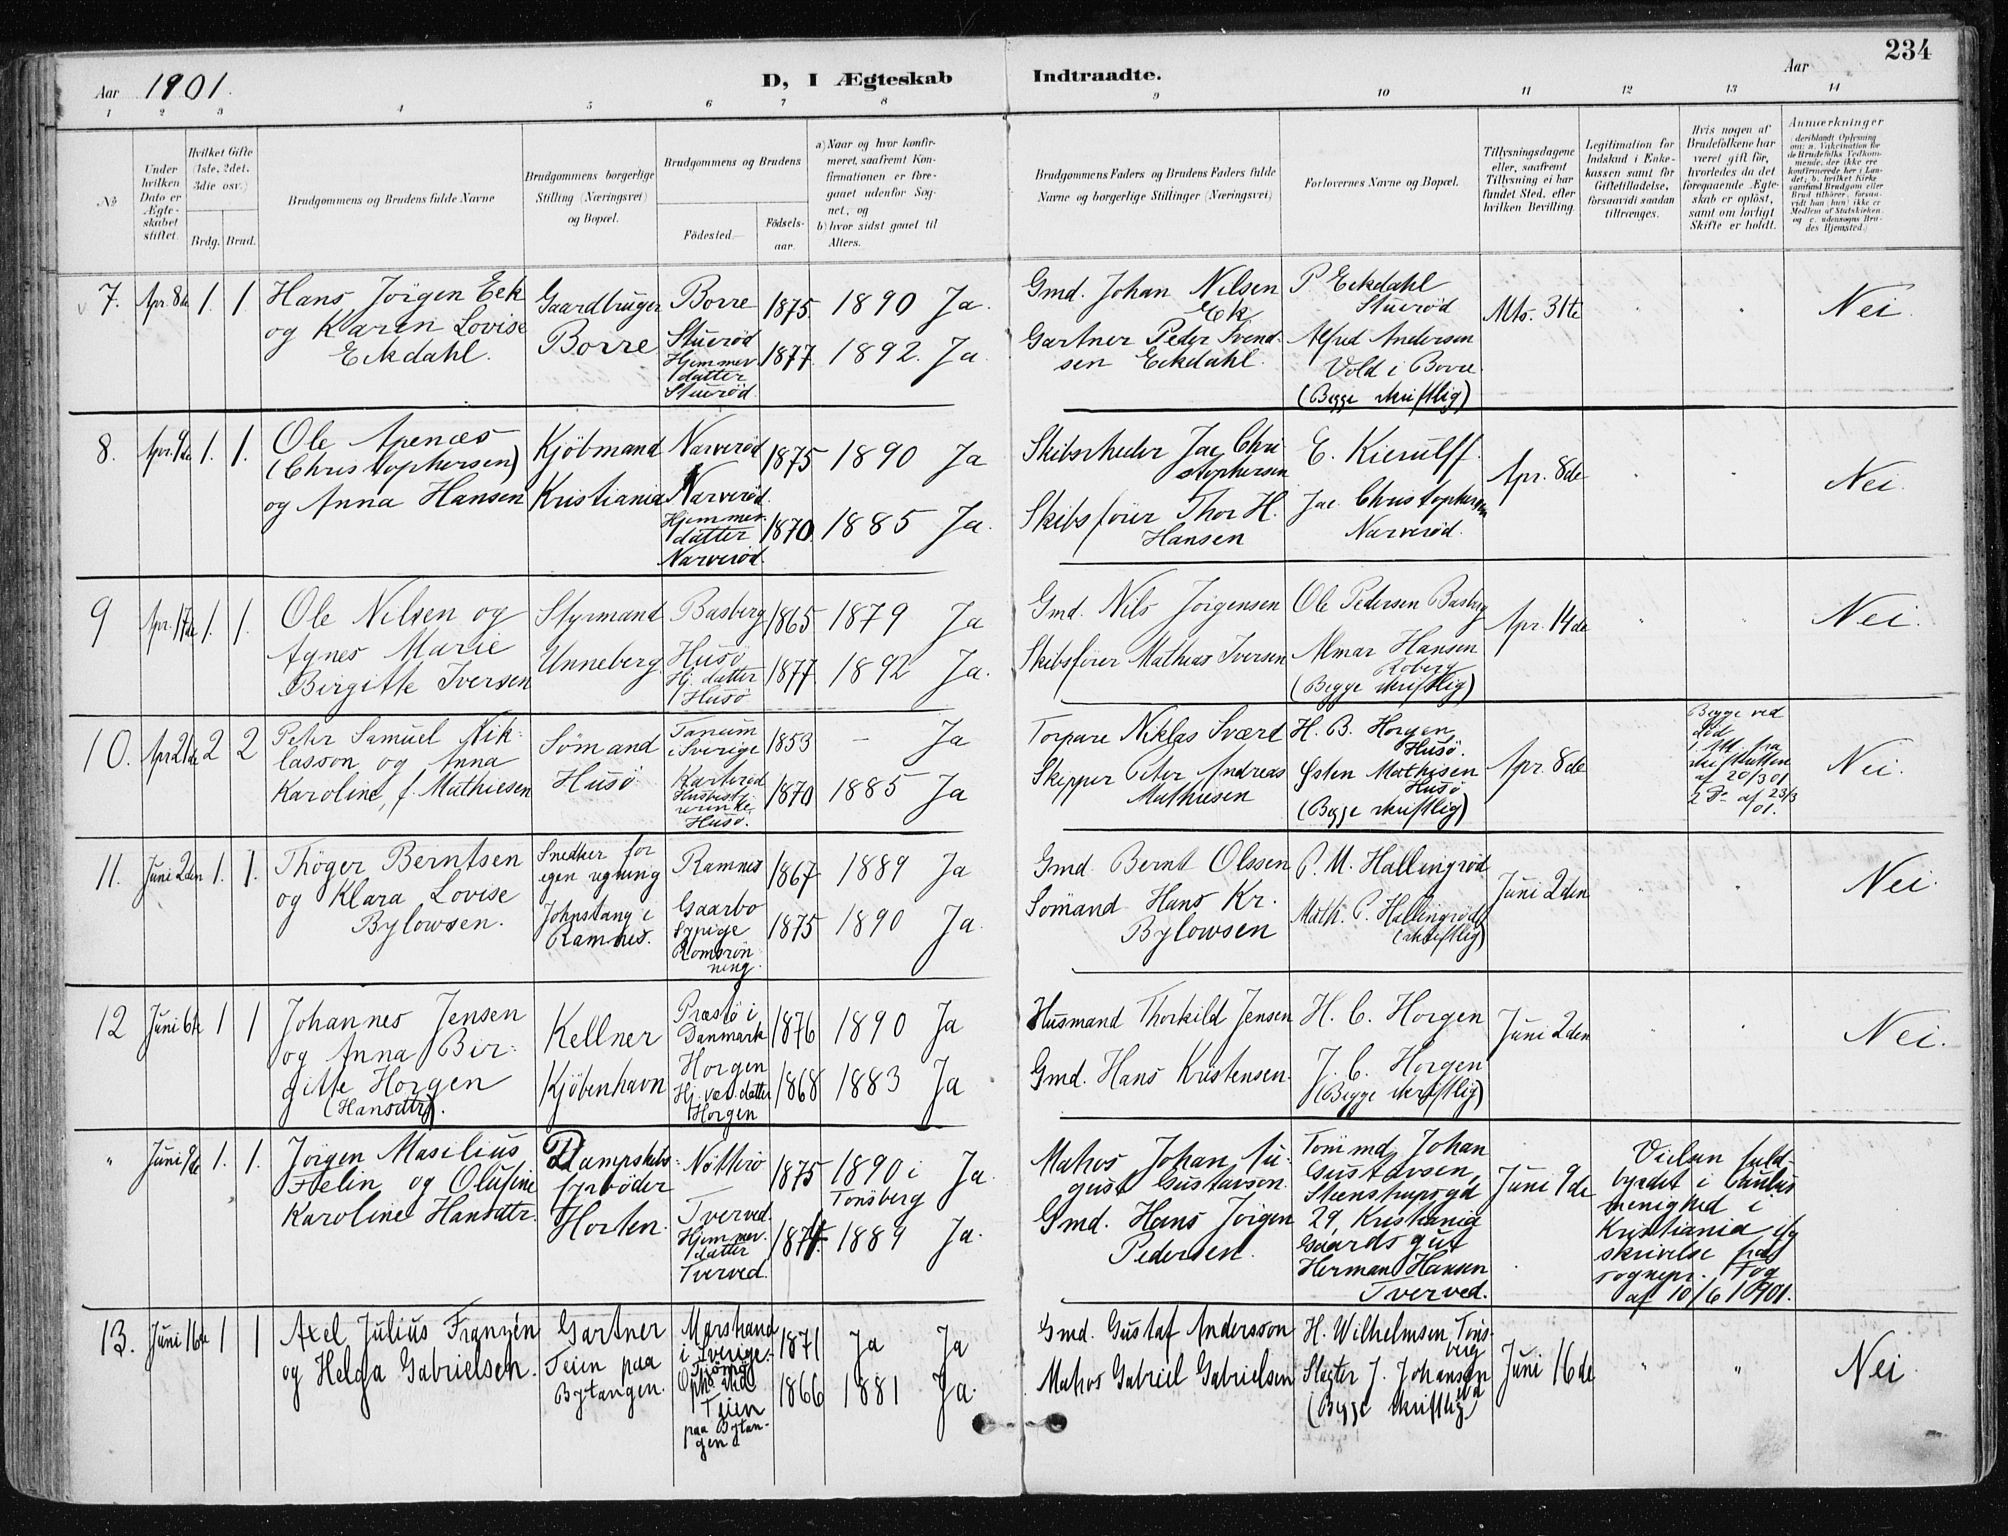 Aar 1901.
D, I Ægteskab Indtraadte.
Aar
234
1 2 3 4 5 6 7 8 9 10 11 12 13 14
No
Under hvilken Dato er Ægteskabet stiftet.
Hvilket Gifte (1ste, 2det, 3die osv.)
Brdg. Brud.
Brudgommens og Brudens fulde Navne
Brudgommens borgerlige Stilling (Næringsvei) og Bopæl.
Brudgommens og Brudens
Fødested.
Fødselsaar.
a) Naar og hvor konfirmeret, saafremt Konfirmationen er foregaaet udenfor Sognet, og
b) hvor sidst gaaet til Alters.
Brudgommens Faders og Brudens Faders fulde Navne og borgerlige Stillinger (Næringsvei)
Forlovernes Navne og Bopæl.
Tillysningsdagene eller, saafremt Tillysning ei har fundet Sted, efter hvilken Bevilling.
Legitimation for Indskud i Enkekassen samt før Giftetilladelse, forsaavidt saadan tiltrænges.
Hvis nogen af Brudefolkene har været gift før, hvorledes da det foregaaende Ægteskab er opløst, samt om lovligt Skifte er holdt.
Anmærkninger (deriblandt Oplysning om: a. Vakcination før de Brudefolks Vedkommende, der ikke ere konfirmerede her i Landet; b. hvilket Kirkesamfund Brudgom eller Brud tilhører, forsaavidt han (hun) ikke er Medlem af Statskirken og c. udensogns Brudes Hjemsted.)
7. Apr. 8de 1. 1 Hans Jörgen Eek
og Karen Lovise
Eckdahl.
Gaardbruger
Borre
Borre 1875 1890 Ja.
Stuerød
Hjemmev.
datter
Stuerød. 1877 1892. Ja.
Gmd. Johan Nilsen
Ek
Gartner Peder Svend-
sen Eckdahl.
P Eckdahl
Stuerød
Alfred Andersen
Vold i Borre
(Begge skriftlig)
Mts. 31te
Nei.
8. Apr. 9de 1. 1. Ole Apenæs
(Christophersen)
og Anna Hansen
Kjöbmand
Kristiania
Narverød 1875 1890 Ja
Narverød.
Hjemmev.
datter
Narverød. 1870 1885 Ja.
Skibsrheder Jac Chri
stophersen
Skibsfører Thor H.
Hansen
E. Kierulff.
Jac. Christophersen
Narverød.
Apr. 8de
Nei.
9 Apr. 17de 1. 1. Ole Nilsen og
Agnes Marie
Birgitte Iversen
Styrmand
Unneberg.
Basberg 1865 1879 Ja
Husö
Hj. datter
Husö 1877 1892 Ja.
Gmd. Nils Jörgensen
Skibsfører Mathias Iversen
Ole Pedersen Basbrg
Almar Hansen
Roberg
(Begge skriftlig)
Apr. 14de
Nei.
10. Apr 21de 2 2 Peter Samuel Nik-
lasson og Anna
Karoline, f. Mathiesen
Sömand
Husö
Tanum
i Sverige 1853 – Ja
Karlerød
Husbesty-
rerinde
Husö. 1870 1885 Ja
Torpare Niklas Sværd
Skipper Peter Andreas
Mathiesen
H. B. Horgen
Husö.
Østen Mathisen
Husö
(Begge skriftlig)
Apr. 8de
Begge ved
död
1. Att. fra
skifteretten
af 20/3 01
2 Do af 23/3
01.
Nei.
11. Juni 2den 1. 1. Thöger Berntsen
og Klara Lovise
Bylowsen.
Snedker for
egen regning
Johnstang i
Ramnes.
Ramnes 1867 1889 Ja
Gaarbo
Sypige
Romsrön-
ning. 1875 1890 Ja.
Gmd. Bernt Olssen
Sömand Hans Kr.
Bylowsen
P. M. Hallingrød
Math. P. Hallingrød
(skriftlig)
Juni 2den
Nei.
12 Juni 6te 1 1 Johannes Jensen
og Anna Bir-
gitte Horgen
(Hansdtr).
Kellner
Kjöbenhavn
Præstö i
Danmark 1876 1890 Ja
Horgen
Hj. vær. datter
Horgen 1868 1883 Ja
Husmand Thorkild Jensen
Gmd. Hans Kristensen.
H. C. Horgen
J. C. Horgen
(Begge skriftlig)
Juni 2den
Nei.
" Juni 9de 1. 1. Jörgen Masilius
Helin og Olufine
Karoline Hansdtr.
Dampskibs-
fyrböder
Horten.
Nötterö 1875 1890 i
Tönsberg Ja.
Tverved.
Hjemmev.
datter
Tverved. 1874 1889 Ja.
Matros Johan Au-
gust Gustavson.
Gmd. Hans Jörgen
Pedersen.
Tömmd. Johan
Gustavsen,
Steenstrupsgd
29, Kristiania
Gaardsgut
Herman Hansen
Tverved.
Juni 9de
Vielsen fuld-
byrdet i Paulus
menighed i
Kristiania iflg
skrivelse fra
sognepr. Fog
af 10/6 1901.
13. Juni 16de 1 1 Axel Julius Franzén
og Helga Gabrielsen.
Gartner
Teien paa
Bytangen.
Marstrand
i Sverige. 1871 Ja Ja
Tjömö
Oph. sted
Teien
paa Bytan-
gen 1866 1881 Ja.
Gmd. Gustaf Andersson
Matros Gabriel Gabrielsen
H. Wilhelmsen Töns-
berg
Slagter J. Johansen
ibd
(Begge skriftlig)
Juni 16de
" "
Nei